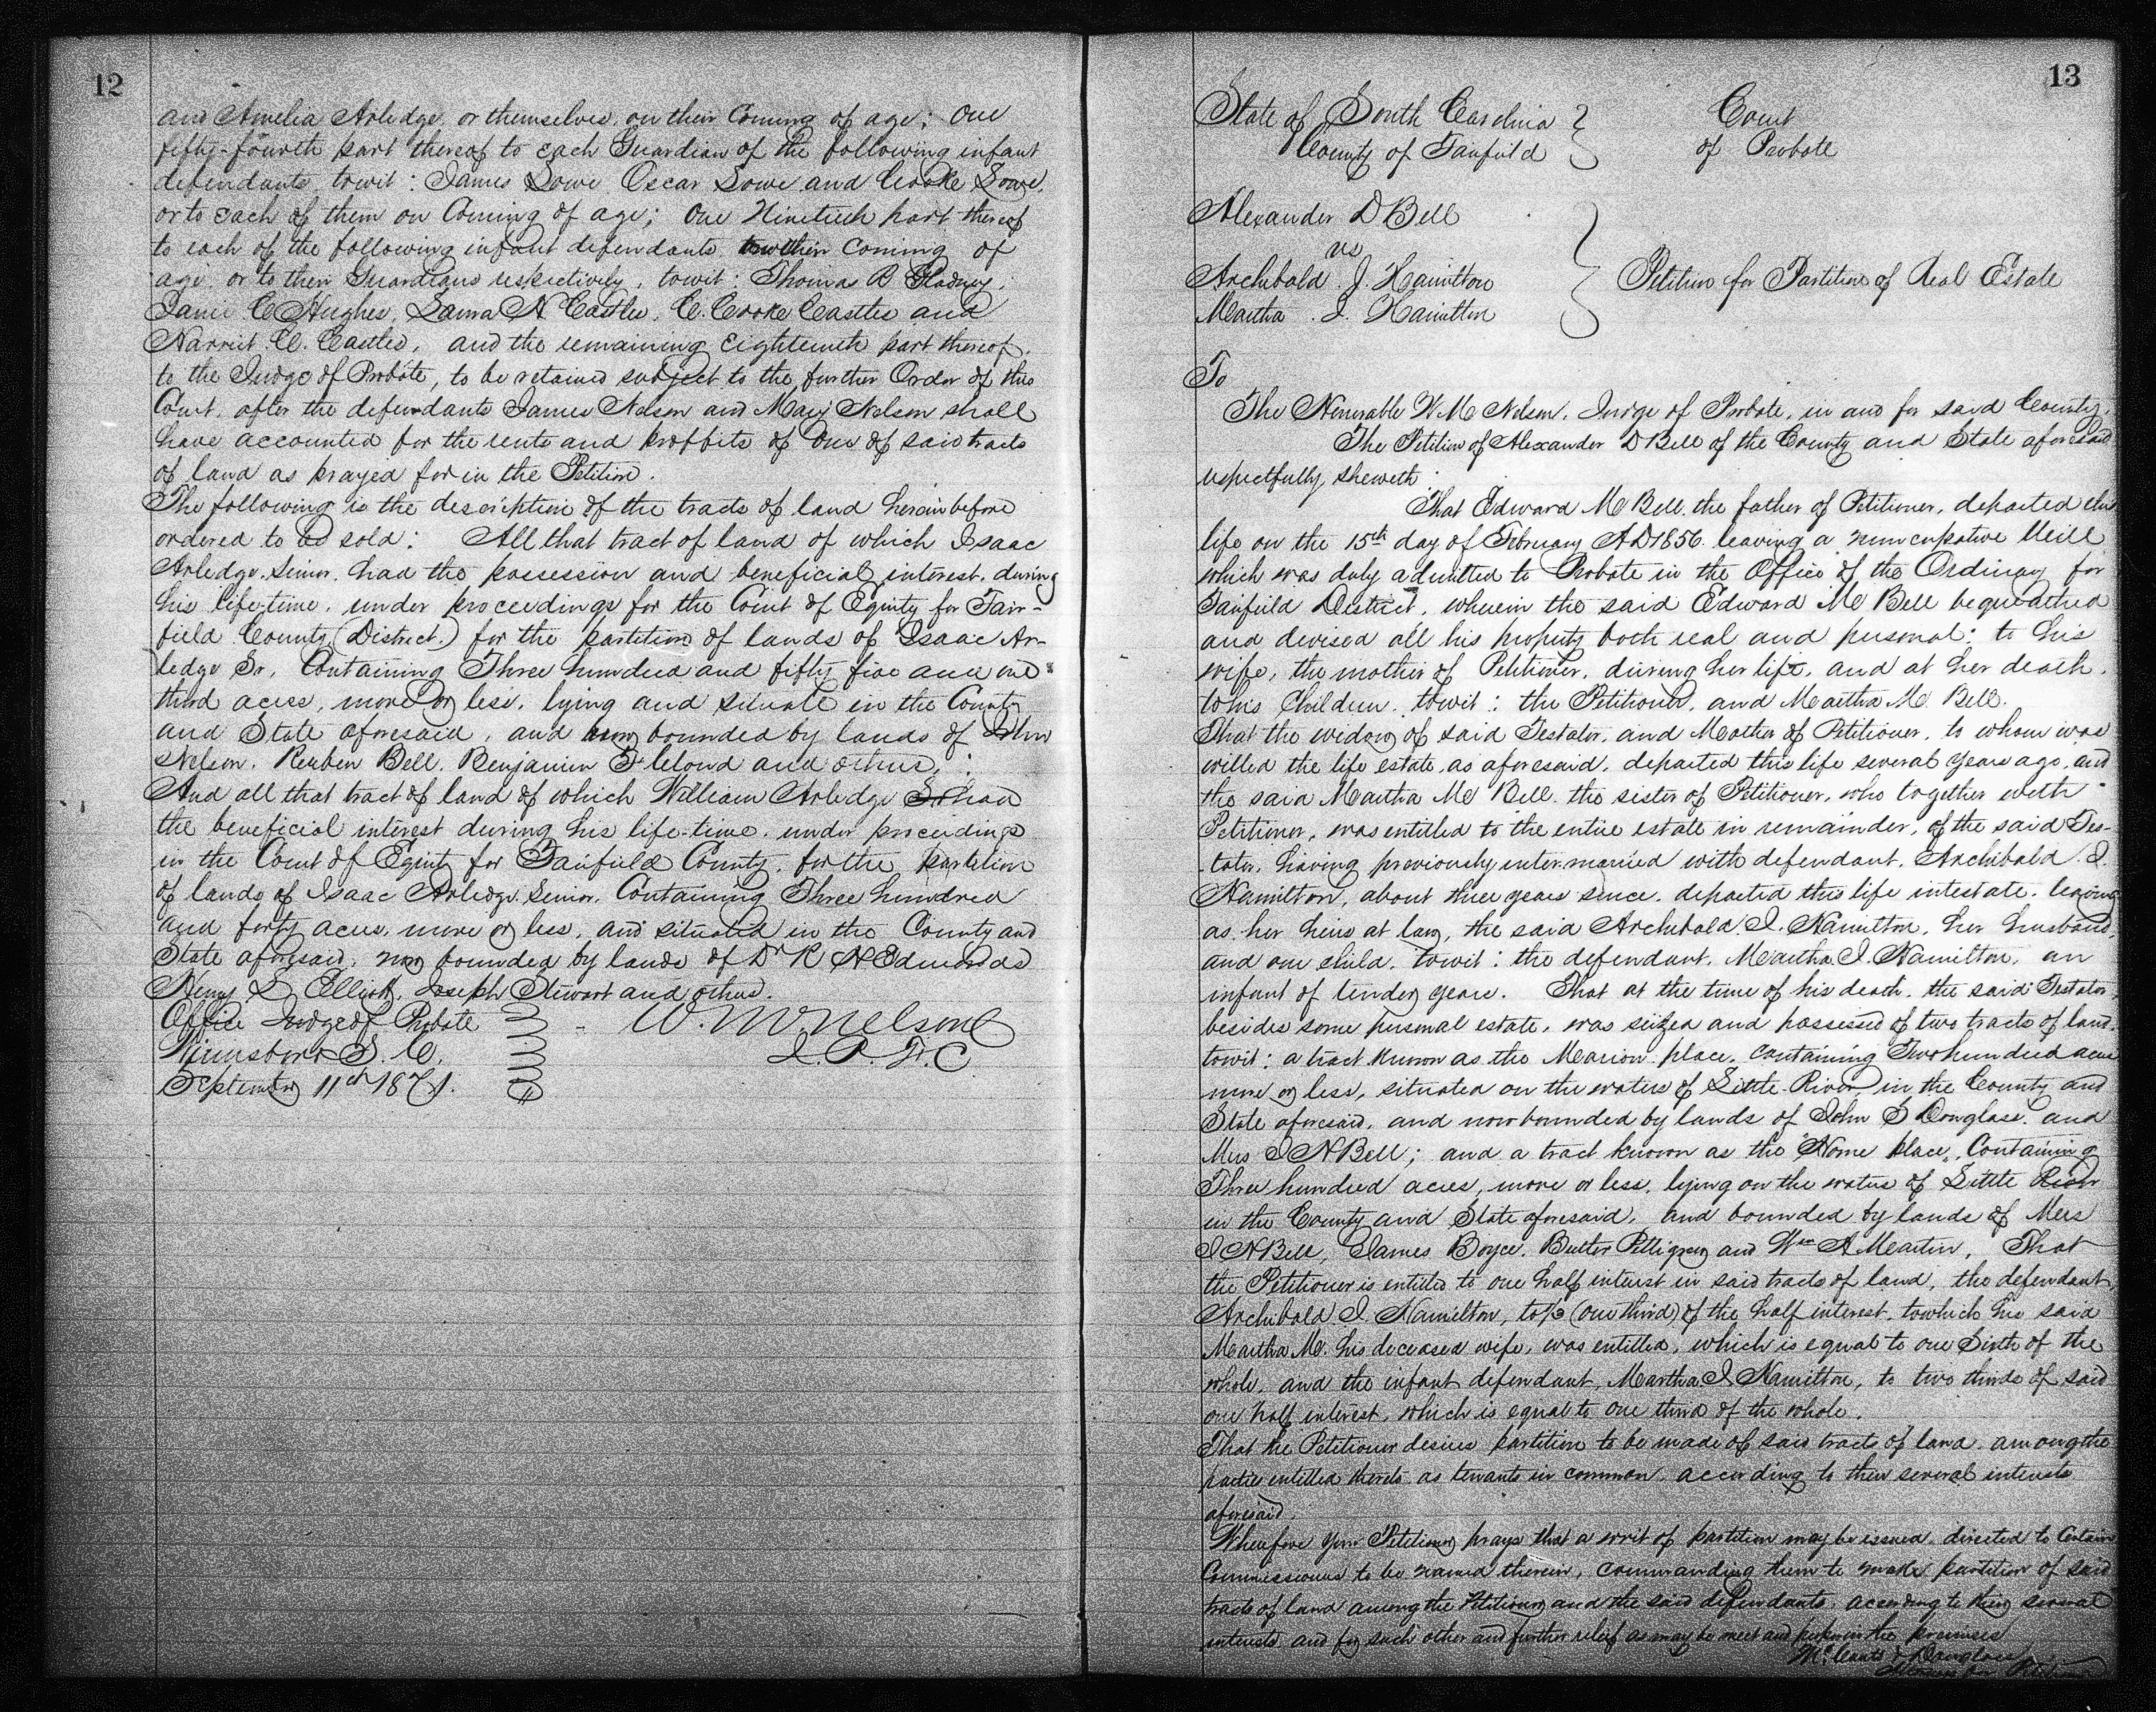 12
and Amelia Arledge, or themselves, on their Coming of age; One
fifty-fourth part thereof to each Guardian of the following infant
defendants, towit: James Lowe, Oscar Lowe and Cooke Lowe,
or to each of them on Coming of age; One Ninetieth part thereof
to each of the following infant defendants coming of
age, or to their Guardians respectively, towit: Thomas B
Janie C Hughes, Laura N Castles, C. Cooke Castles and
Harriet C. Castles, and the remaining Eighteenth part thereof,
to the Judge of Probate, to be retained subject to the further Order of this
Court, after the defendants James Nelson and Mary Nelson shall
have accounted for the rents and proffits of One of said tracts
of land as prayed for in the Petition.
The following is the description of the tracts of land hereinbefore
ordered to be sold: All that tract of land of which Isaac
Arledge, Senior, had the possession and beneficial interest, during
his life-time, under proceedings for the Court of Equity for Fair-
field County (District.) for the partition of lands of Isaac Ar-
ledge Sr, Containing Three hundred and fifty five and one
third acres, more or less, lying and situate in the County
and State aforesaid, and now bounded by lands of John
Nelson, Reuben Bell, Benjamin and others;
And all that tract of land of which William Arledge Sr had
the beneficial interest during his life-time, under proceedings
in the Court of Equity for Fairfield County, for the partition
of lands of Isaac Arledge, Senior, Containing Three hundred
and forty acres, more or less, and situated in the County and
State aforesaid, now bounded by lands of Dr R H Edmonds
Henry L Elliott, Joseph Stewart and others.
Office Judge of Probate
W. M. Nelson
Winnsboro S. C.
J. P. F. C
September 11th 1871.
13
State of South Carolina
County of Fairfield
Court
of Probate
Alexander D Bell
vs
Archibald J. Hamilton
Martha J. Hamilton
Petition for Partition of Real Estate
To
The Honorable W. M. Nelson, Judge of Probate, in and for said County,
The Petition of Alexander D Bell of the County and State aforesaid
respectfully sheweth
That Edward M Bell, the father of Petitioner, departed this
life on the 15th day of February A D 1856 leaving a nuncupative Will
which was duly admitted to Probate in the Office of the Ordinary for
Fairfield District, wherein the said Edward M Bell bequeathed
and devised all his property both real and personal: to his
wife, the mother of Petitioner, during her life, and at her death,
to his Children, towit: the Petitioner, and Martha M. Bell.
That the widow of said Testator, and Mother of Petitioner, to whom was
willed the life estate, as aforesaid, departed this life several years ago, and
the said Martha M Bell, the sister of Petitioner, who together with
Petitioner, was entitled to the entire estate in remainder, of the said Tes-
tator, having previously intermarried with defendant, Archibald J.
Hamilton, about three years since, departed this life intestate, leaving
as her heirs at law, the said Archibald J. Hamilton, her husband,
and one child, towit: the defendant, Martha J. Hamilton, an
infant of tender years. That at the time of his death, the said Testator,
besides some personal estate, was seized and possessed of two tracts of land,
towit: a tract known as the Marion place, containing Two hundred acres
more or less, situated on the waters of Little River, in the County and
State aforesaid, and now bounded by lands of John S Douglass, and
Mrs J N Bell; and a tract known as the "Home place", Containing
Three hundred acres, more or less, lying on the waters of Little River
in the County and State aforesaid, and bounded by lands of Mrs
J N Bell, James Boyce, Butler Pettigrew and Wm A Martin. That
the Petitioner is entitled to one half interest in said tracts of land, the defendant,
Archibald J. Hamilton, to 1/3 (one third) of the half interest, to which his said
Martha M. his deceased wife, was entitled, which is equal to one Sixth of the
whole, and the infant defendant, Martha J. Hamilton, to two thirds of said
one half interest, which is equal to one third of the whole.
That the Petitioner desires partition to be made of said tracts of land, among the
parties entitled thereto as tenants in common, according to their several interests
aforesaid.
Wherefore your Petitioner prays that a writ of partition may be issued, directed to Certain
Commissioners to be named therein, commanding them to make partition of said
tracts of land among the Petitioner and the said defendants, according to their several
interests and for such other and further relief as may be meet and proper in the premises
McCants & Douglass